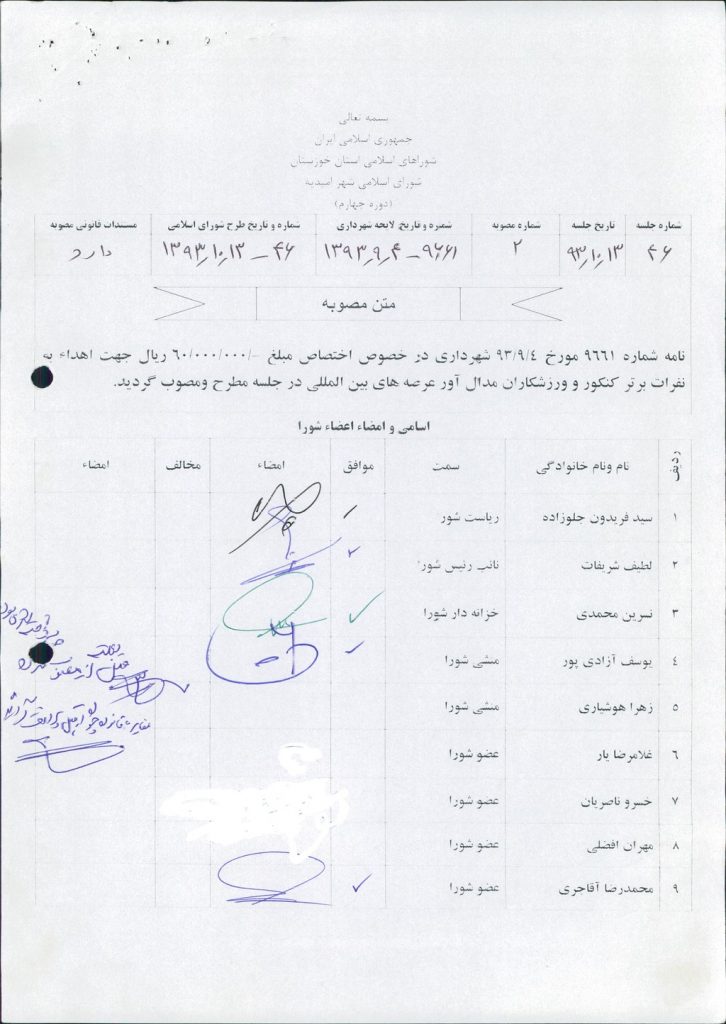 بسمه تعالی
جمهوری اسلامی ایران
شوراهای اسلامی استان خوزستان
شورای اسلامی شهر امیدیه
(دوره چهارم)
شماره جلسه تاریخ جلسه شماره مصوبه شمره و تاریخ لایحه شهرداری شماره و تاریخ طرح شورای اسلامی مستندات قانونی مصوبه
۴۶ ۹۳٫۱۰٫۱۳ ۲ ۹۶۶۱ – ۱۳۹۳٫۹٫۴ ۴۶ – ۱۳۹۳٫۱۰٫۱۳ دارد
متن مصوبه
نامه شماره ۹۶۶۱ مورخ ۹۳/۹/٤ شهرداری در خصوص اختصاص مبلغ -/۶۰/۰۰۰/۰۰۰ ریال جهت اهداء به
نفرات برتر کنکور و ورزشکاران مدال آور عرصه های بین المللی در جلسه مطرح ومصوب گردید.
اسامی و امضاء اعضاء شورا
ردیف نام ونام خانوادگی سمت موافق امضاء مخالف امضاء
۱ سید فریدون جلوزاده ریاست شور
۲ لطیف شریفات نائب رئیس شور
۳ نسرین محمدی خزانه دار شورا
٤ یوسف آزادی پور منشی شورا
۵ زهرا هوشیاری منشی شورا
۶ غلامرضا یار عضو شورا
۷ خسرو ناصریان عضو شورا
۸ مهران افضلی عضو شورا
۹ محمدرضا آقاجری عضو شورا